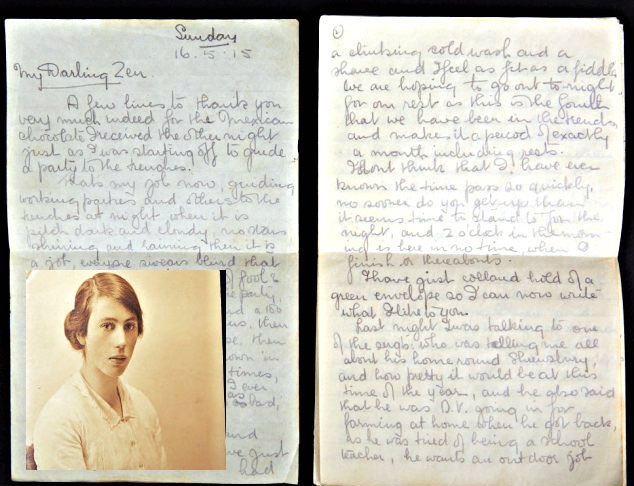 Sunday
16.5.15
My Darling Zen
A few lines to thank you
very much indeed for the Mexican
chocolate I received the other night
just as I was starting off to guide
a party to the trenches.
Thats my job now, guiding
working parties and others to the
trenches at night, when it is
pitch dark and cloudy, no stars
shining and raining then it is
a job, everyone swears blind that
of fool &
the party,
and a 100
then
then
own in
times,
I ever
as
bad,
and
just
had
a climbing cold wash and a
shave and I feel as fit as a fiddle
We are hoping to go out to-night
for our rest as this is the fourth
that we have been in the trenches
and makes it a period of exactly
a month including rests.
I dont think that I have ever
known the time pass so quickly,
no sooner do you get up than
it seems time to stand to for the
night, and 2 oclock in the morn-
ing is here in no time, when I
finish or thereabouts.
I have just collared hold of a
green envelope so I can now write
what I like to you
Last night I was talking to one
of the sergts who was telling me all
about his home round Shrewsbury,
and how pretty it would be at this
time of the year, and he also said
that he was D.V. going in for
farming at home when he got back,
as he was tired of being a school
teacher, he wants an outdoor job